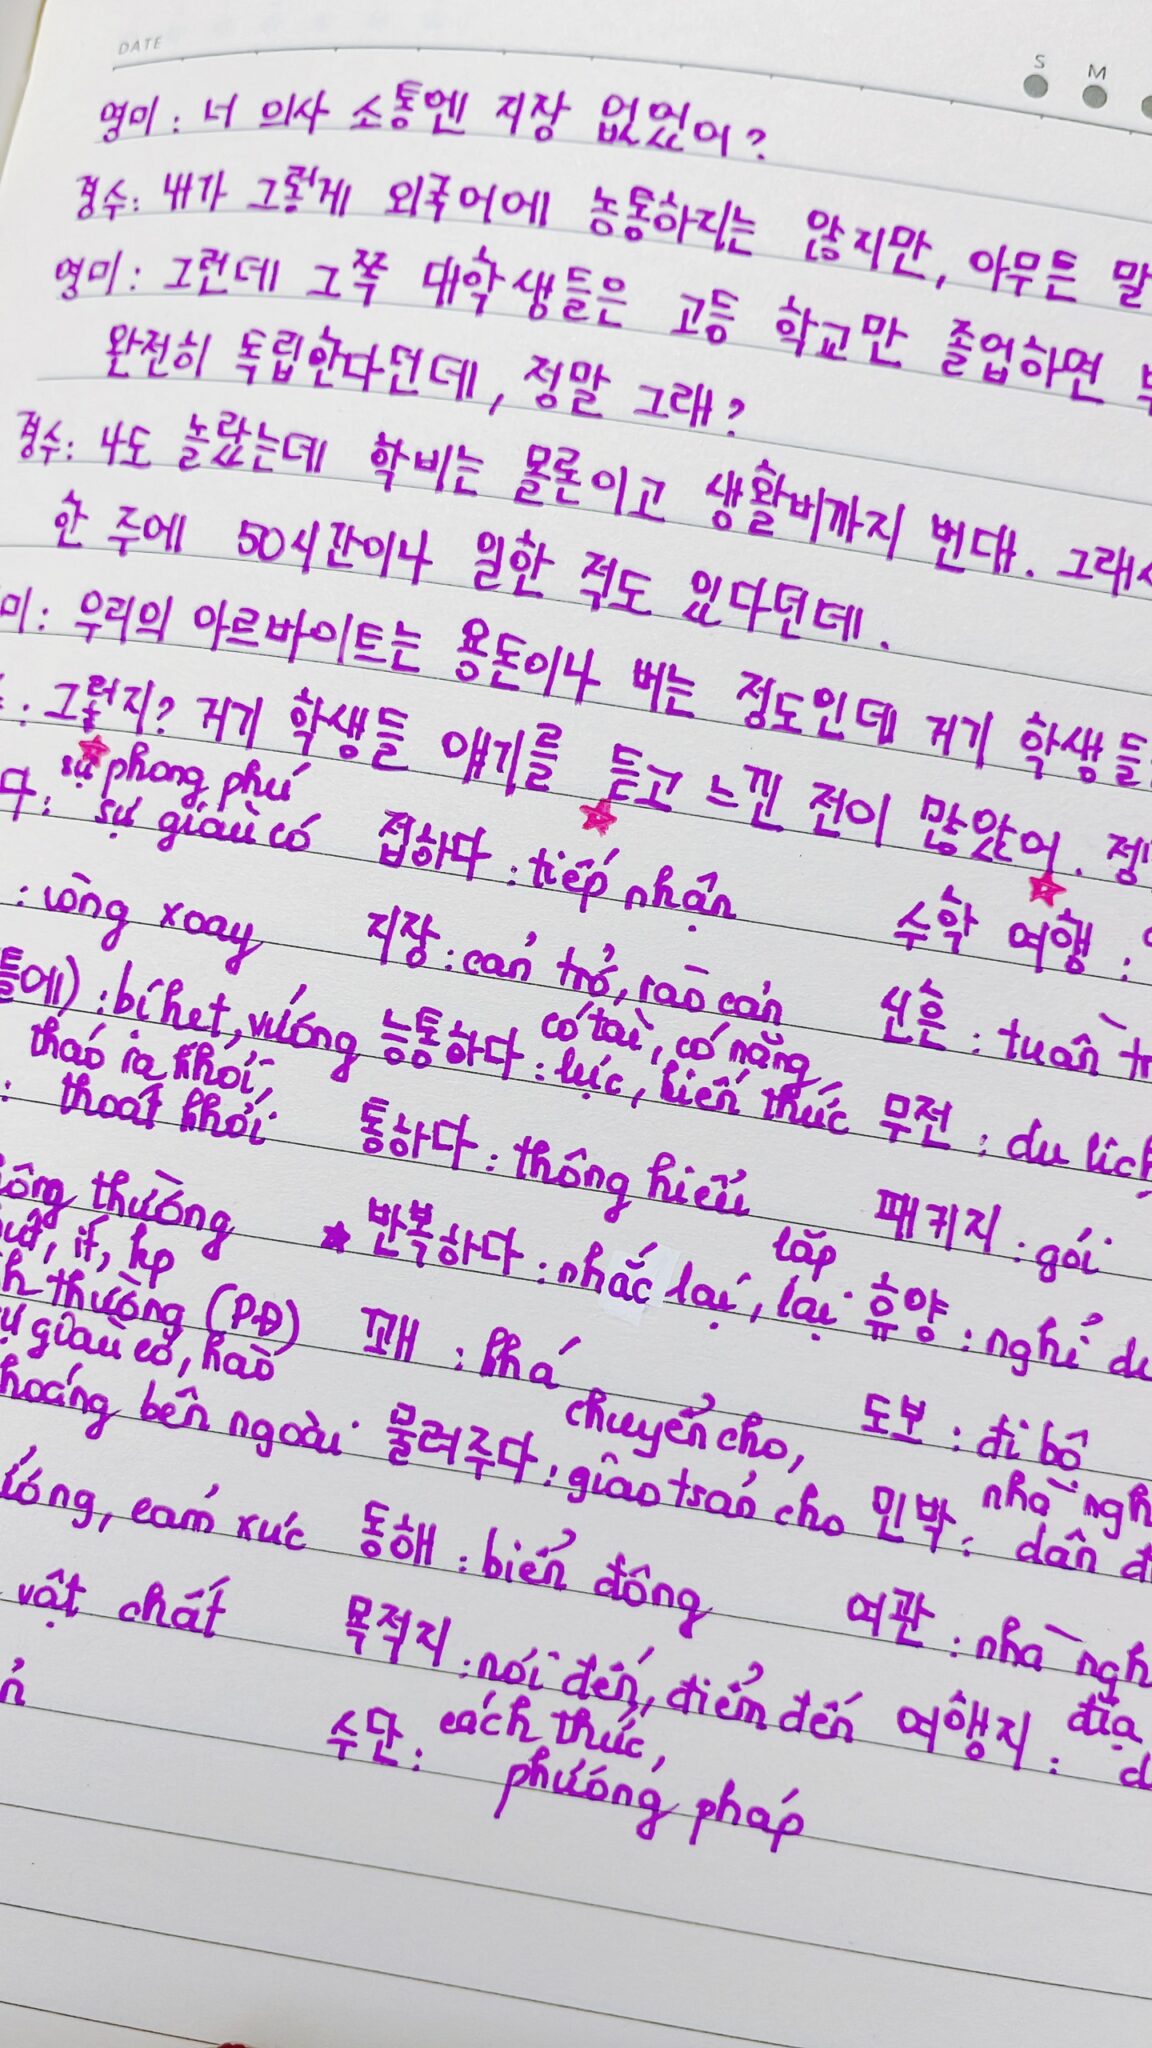 DATE
S M
영미: 너 의사 소통엔 지장 없었어?
경수: 내가 그렇게 외국어에 능통하지는 않지만, 아무튼 말
영미: 그런데 그쪽 대학생들은 고등 학교만 졸업하면
완전히 독립한다던데, 정말 그래?
경수: 나도 놀랐는데 학비는 물론이고 생활비까지 번대. 그래서
한 주에 50시간이나 일한 적도 있다던데.
미: 우리의 아르바이트는 용돈이나 버는 정도인데 거기 학생들
: 그렇지? 거기 학생들 얘기를 듣고 느낀 전이 많았어. 정
sự phong phú
다: sự giàu có 접하다: tiếp nhận 수학 여행:
: vòng xoay 지장: cản trở, rào cản 신혼: tuần tr
틀에): bí hẹt, vướng 능통하다: có tài, có năng lực, kiến thức 무전: du lịch
tháo ra khỏi,
: thoát khỏi 통하다: thông hiểu 패키지: gói
ông thường ★ 반복하다: nhắc lại, lặp lại 휴양: nghỉ dư
, ít, hp
h thường (P.Đ) 꽤: khá 도보: đi bộ
ự giàu có, hào
hoáng bên ngoài 물려주다: chuyển cho, giao tsản cho 민박: nhà nghỉ dân đ
ướng, cảm xúc 동해: biển đông 여관: nhà ngh
vật chất 목적지: nơi đến, điểm đến 여행지: địa d
수단: cách thức, phương pháp